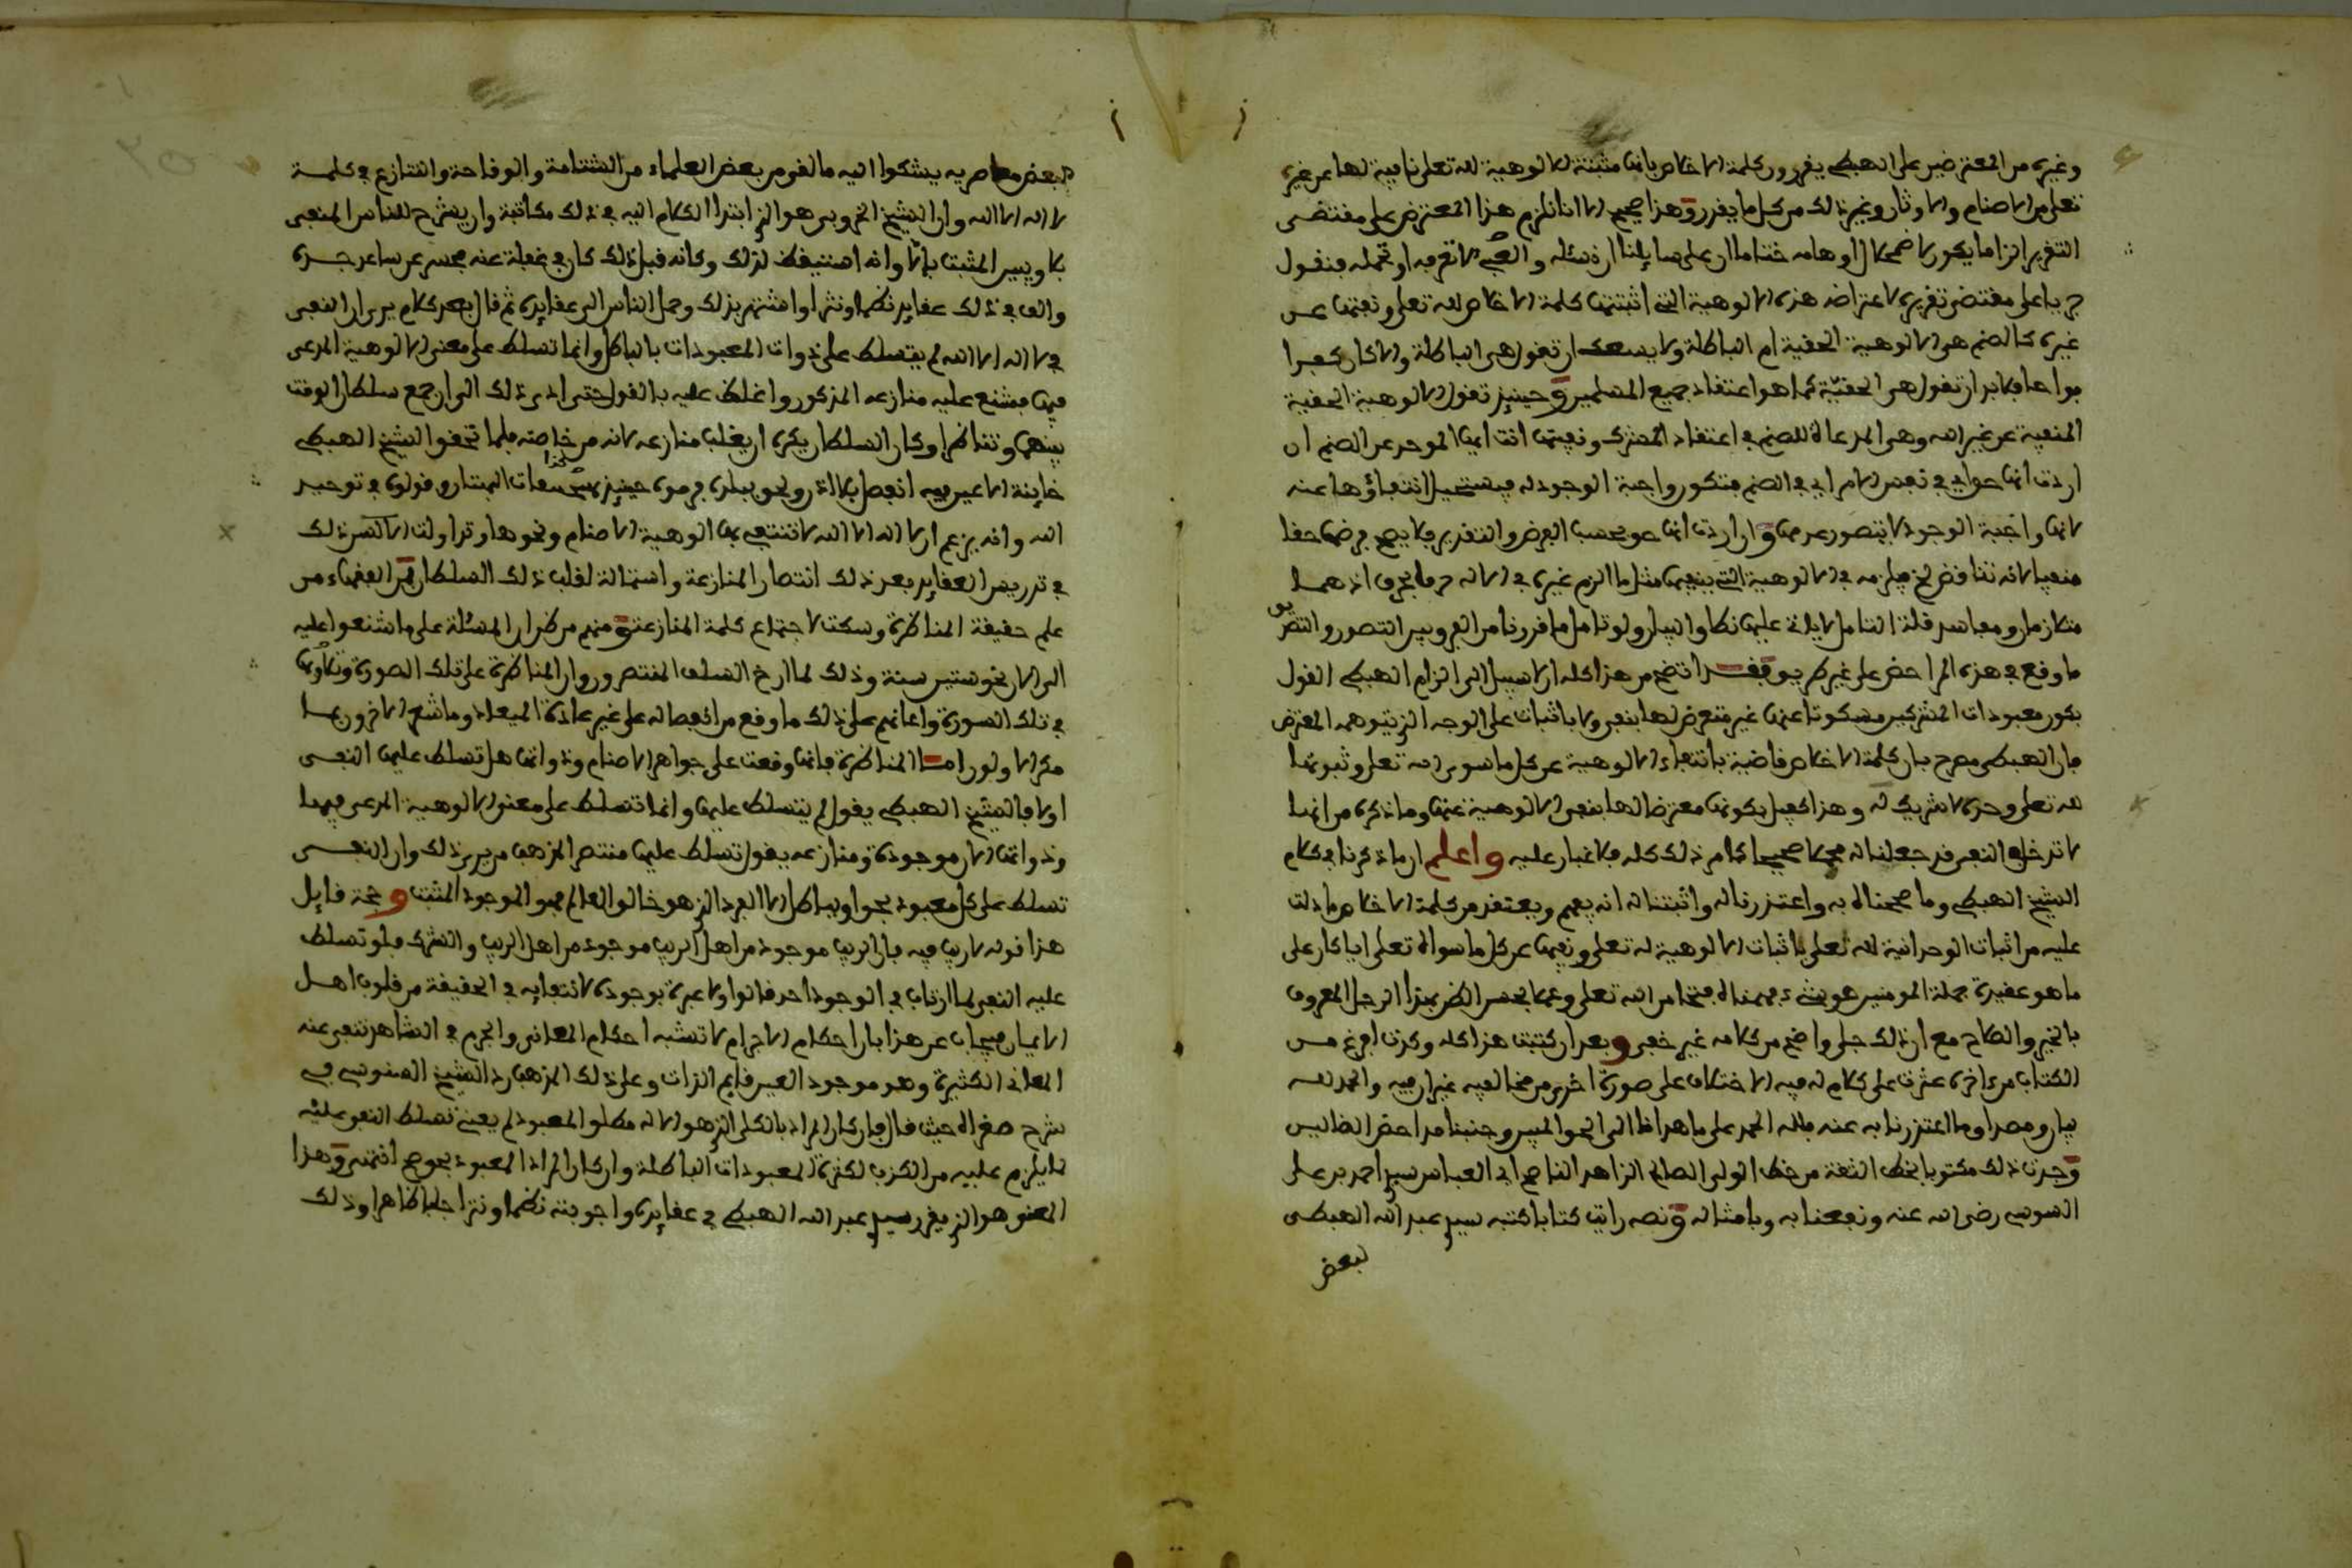 وغيره من المعترضين على الهبطي يقررون كلمة الاخلاص بانها مثبتة للالوهية لله تعلى نافية لها عن غيره
تعلى من الاصنام والاوثان وغير ذلك من كل ما يقرر وهذا صحيح الا انا نلزم هذا المعترض على مقتضى
التقرير الزاما يكون لاضمحلال اوهامه ختاما ان على سايلنا ان نسئله
جريا على مقتضى تقريره لاعتراضه هذه الالوهية التي اثبتتها كلمة الاخلاص لله تعلى ونفتها عن
غيره كالصنم هي الالوهية الحقية ام الباطلة ولا يسعك ان تقول هي الباطلة والا كان كفرا
بواحا فلا بد ان تقول هي الحقية كما هو اعتقاد جميع المسلمين وحينيذ نقول الالوهية الحقية
المنفية عن غير الله وهي المدعاة للصنم في اعتقاد المشرك ونفيتها انت ايها الموحد عن الصنم ان
اردت انها حوا في نفس الامر اي في الصنم فتكون واجبة الوجود له فيستحيل انتفاؤها عنه
لانها واجبة الوجود لا يتصور عدمها وان اردت انها حق بحسب الفرض والتقدير فلا يصح فرضها حقا
منفيا لانه تناقض فيلزمه في الالوهية التي ينفيها مثل ما الزم غيره في الاله حرفا بحرف اذ هما
متلازمان ومفاسد قلة التامل لا ياتي عليها نطاق البيان ولو تامل ما قررنا من الفرق بين التصور والتصديق
ما وقع في هذه المداحض على غير طريق فقد اتضح من هذا كله ان لا سبيل الى الزام الهبطي القول
بكون معبودات المشركين مسكوتا عنها غير متعرض لها بنفي ولا باثبات على الوجه الذي توهمه المعترض
فان الهبطي مصرح بان كلمة الاخلاص قاضية بانتفاء الالوهية عن كل ما سوى الله تعلى وثبوتها
لله تعلى وحده لا شريك له وهذا كفيل بكونها معترضا لها بنفي الالوهية عنها وما ذكره من انها
لا تدخل في النفي قد جعلنا له محملا صحيحا كامر ذلك كله فلا غبار عليه واعلم ان ما ذكرنا في كلام
الشيخ الهبطي وما صححناه به واعتذرنا له واثبتنا له انه يفهم ويعتقد من كلمة الاخلاص ما دلت
عليه من اثبات الوحدانية لله تعلى باثبات الالوهية له تعلى ونفيها عن كل ما سواه تعلى ايا كان على
ما هو عقيدة جملة المومنين هو شيء فهمناه فتحا من الله تعلى وعملا بحسن الظن بهذا الرجل المعروف
بالخير والصلاح مع ان ذلك جلي واضح من كلامه غير خفي وبعد ان كتبت هذا كله وكدت افرغ من
الكتاب من اخره عثرت على كلام له فيه الاختلاف على صورة اخرى من مخالفيه غير ان فيه والحمد لله
بيان مصداق ما اعتذرنا به عنه فلله الحمد على ما هدانا الى الحق المبين وجنبنا مداحض الظانين
وجدت ذلك مكتوبا بخط الثقة من خط الولي الصالح الزاهد الناصح ابي العباس سيدي احمد بن علي
السوسي رضي الله عنه ونفعنا به وبامثاله ونصه رايت كتابا كتبه سيدي عبد الله الهبطي
لبعض
لبعض معاصريه يشكوا اليه ما لقي من بعض العلماء من الشتامة والوقاحة والتنازع في كلمة
لا اله الا الله وان الشيخ الخروبي هو الذي ابتدا الكلام اليه في ذلك مكاتبة وان يشرح للناس المنفي
بلا ويبين المثبت بالا وانه استيقظ لذلك وكانه قبل ذلك كان في غفلة عنه فحسر عن ساعد جده
والف في ذلك عقايد نظما ونثرا واشتهر بذلك وحمل الناس الى عقايده ثم قال بعد كلام يرى ان النفي
في لا اله الا الله لم يتسلط على ذوات المعبودات بالباطل وانما تسلط على معنى الالوهية المدعى
فيها فشنع عليه منازعه المذكور واغلظ عليه بالقول حتى ادى ذلك الى ان جمع سلطان الوقت
بينهما وتناظرا وكان السلطان يكره ان يغلب منازعه لانه من خاصته فلما تحقق الشيخ الهبطي
خاينة الاعين فيه انفصل بلا اذن ولحق ببلده فرموه حينيذ كذا
الله وانه يزعم ان لا اله الا الله لا تنتفي بها الوهية الاصنام ونحوها وتداولت الالسن ذلك
في تدريس العقايد بعد ذلك انتصارا لمنازعه واستمالة لقلب ذلك السلطان فمن الفقهاء من
علم حقيقة المناظرة وسكت لاجتماع كلمة المنازعة ومنهم من ظن ان المسئلة على ما شنعوا عليه
الى الان نحو ستين سنة وذلك لما ارخ السلف المقتصرون وان المناظرة على تلك الصورة ونقلوها
في تلك الصورة واعانهم على ذلك ما وقع من انفصاله على غير عادة الميعاد وما شنع الاخرون بها
مكرا ولددا اما المناظرة فانها وقعت على جواهر الاصنام وذواتها هل تسلط عليها النفي
اولا فالشيخ الهبطي يقول لم يتسلط عليها وانما تسلط على معنى الالوهية المدعى فيها
وذواتها الان موجودة ومنازعه يقول تسلط عليها منتصرا لمذهب من يرى ذلك وان النفي
تسلط على كل معبود بحق او بباطل الا الفرد الذي هو خالق العالم فهو الموجود المثبت وحجة قايل
هذا قوله لا ريب فيه فان الريب موجود من اهل الريب موجود من اهل الريب والشرك فلو تسلط
عليه النفي لما ارتاب في الوجود احد قالوا ولا عبرة بوجوده لانتفايه في الحقيقة من قلوب اهل
الايمان فيجاب عن هذا بان احكام الاجرام لا تشبه احكام المعاني والجرم في الشاهد تنتفي عنه
المعاني الكثيرة وهو موجود العين قايم الذات وعلى ذلك المذهب رد الشيخ السنوسي في
شرح صغراه حيث قال فان كان المراد بالكلي الذي هو الاله مطلق المعبود لم يصح تسلط النفي عليه
لما يلزم عليه من الكذب لكثرة المعبودات الباطلة وان كان المراد المعبود بحق صح انتهى وهذا
المعنى هو الذي يقرر سيدي عبد الله الهبطي في عقايده واجوبته نظما ونثرا جليا ظاهرا وذلك